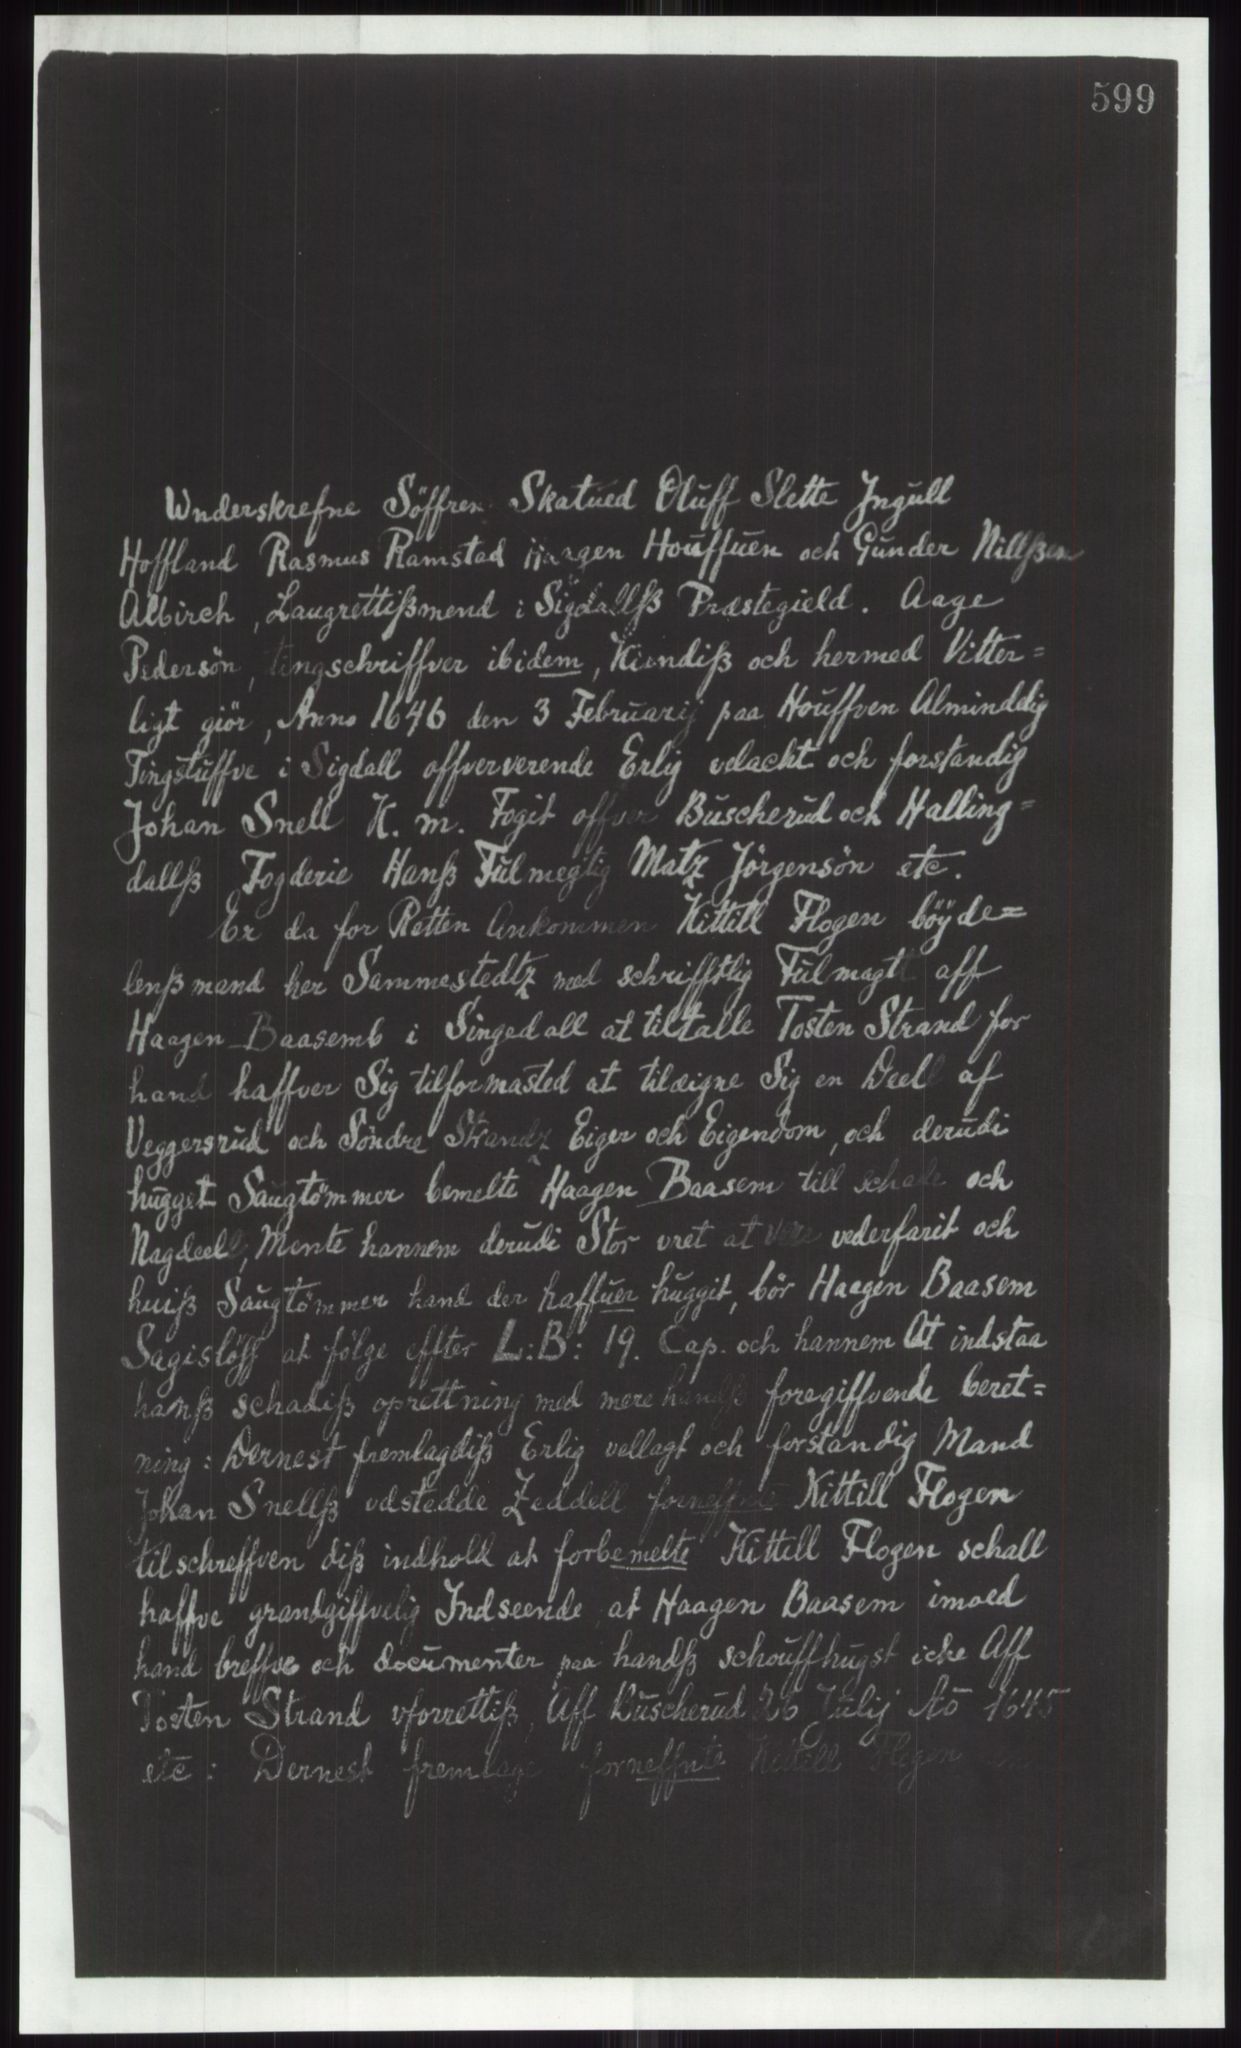 599
Wnderskrefne Söffren Skatued Oluff Slette Jngull
Hoffland Rasmus Ramstad Haagen Houffuen och Gunder Nillßen
Albirch, Laugrettißmend i Sigdallß Præstegield. Aage
Pedersön, tingschriffver ibidem, Kiendiß och hermed Vitter=
ligt giör, Anno 1646 den 3 Februarij paa Houffven Alminddig
Tingstuffve i Sigdall offververende Erlig velacht och forstandig
Johan Snell K. m. Fogit offver Buscherud och Halling=
dallß Fogderie Hanß Fulmegtig Matz Jörgensön etc.
Er da for Retten Ankommen Kittill Flogen böÿde=
lenßmand her Sammestedtz med schrifftlig Fulmagt aff
Haagen Baasemb i Singedall at tiltalle Tosten Strand for
hand haffver Sig tilformasted at tileigne Sig en Deell af
Veggersrud och Söndre Strandz Eiger och Eigendom, och derudi
hugget Saugtömmer bemelte Haagen Baasem till schade och
Nagdeell, Mente hannem derudi Stor vret at vere vederfarit och
huiß Saugtömmer hand der haffuer huggit, bör Haagen Baasem
Sagislöff at fölge effter L:B: 19. Cap. och hannem At indstaa
hanß schadiß oprettning med mere handß foregiffvende beret=
ning: Dernest fremlagdiß Erlig vellagt och forstandig Mand
Johan Snellß vdstedde Zeddell forneffnte Kittill Flogen
tilschreffven diß indhold at forbemelte Kittill Flogen schall
haffve grandgiffvelig Indseende at Haagen Baasem imoed
hand breffve och documenter paa handß schouffhugst icke Aff
Tosten Strand vforrettiß, Aff Buscherud 26 Julij Ao 1645
etc: Dernest fremlage forneffnte Kittill Flogen